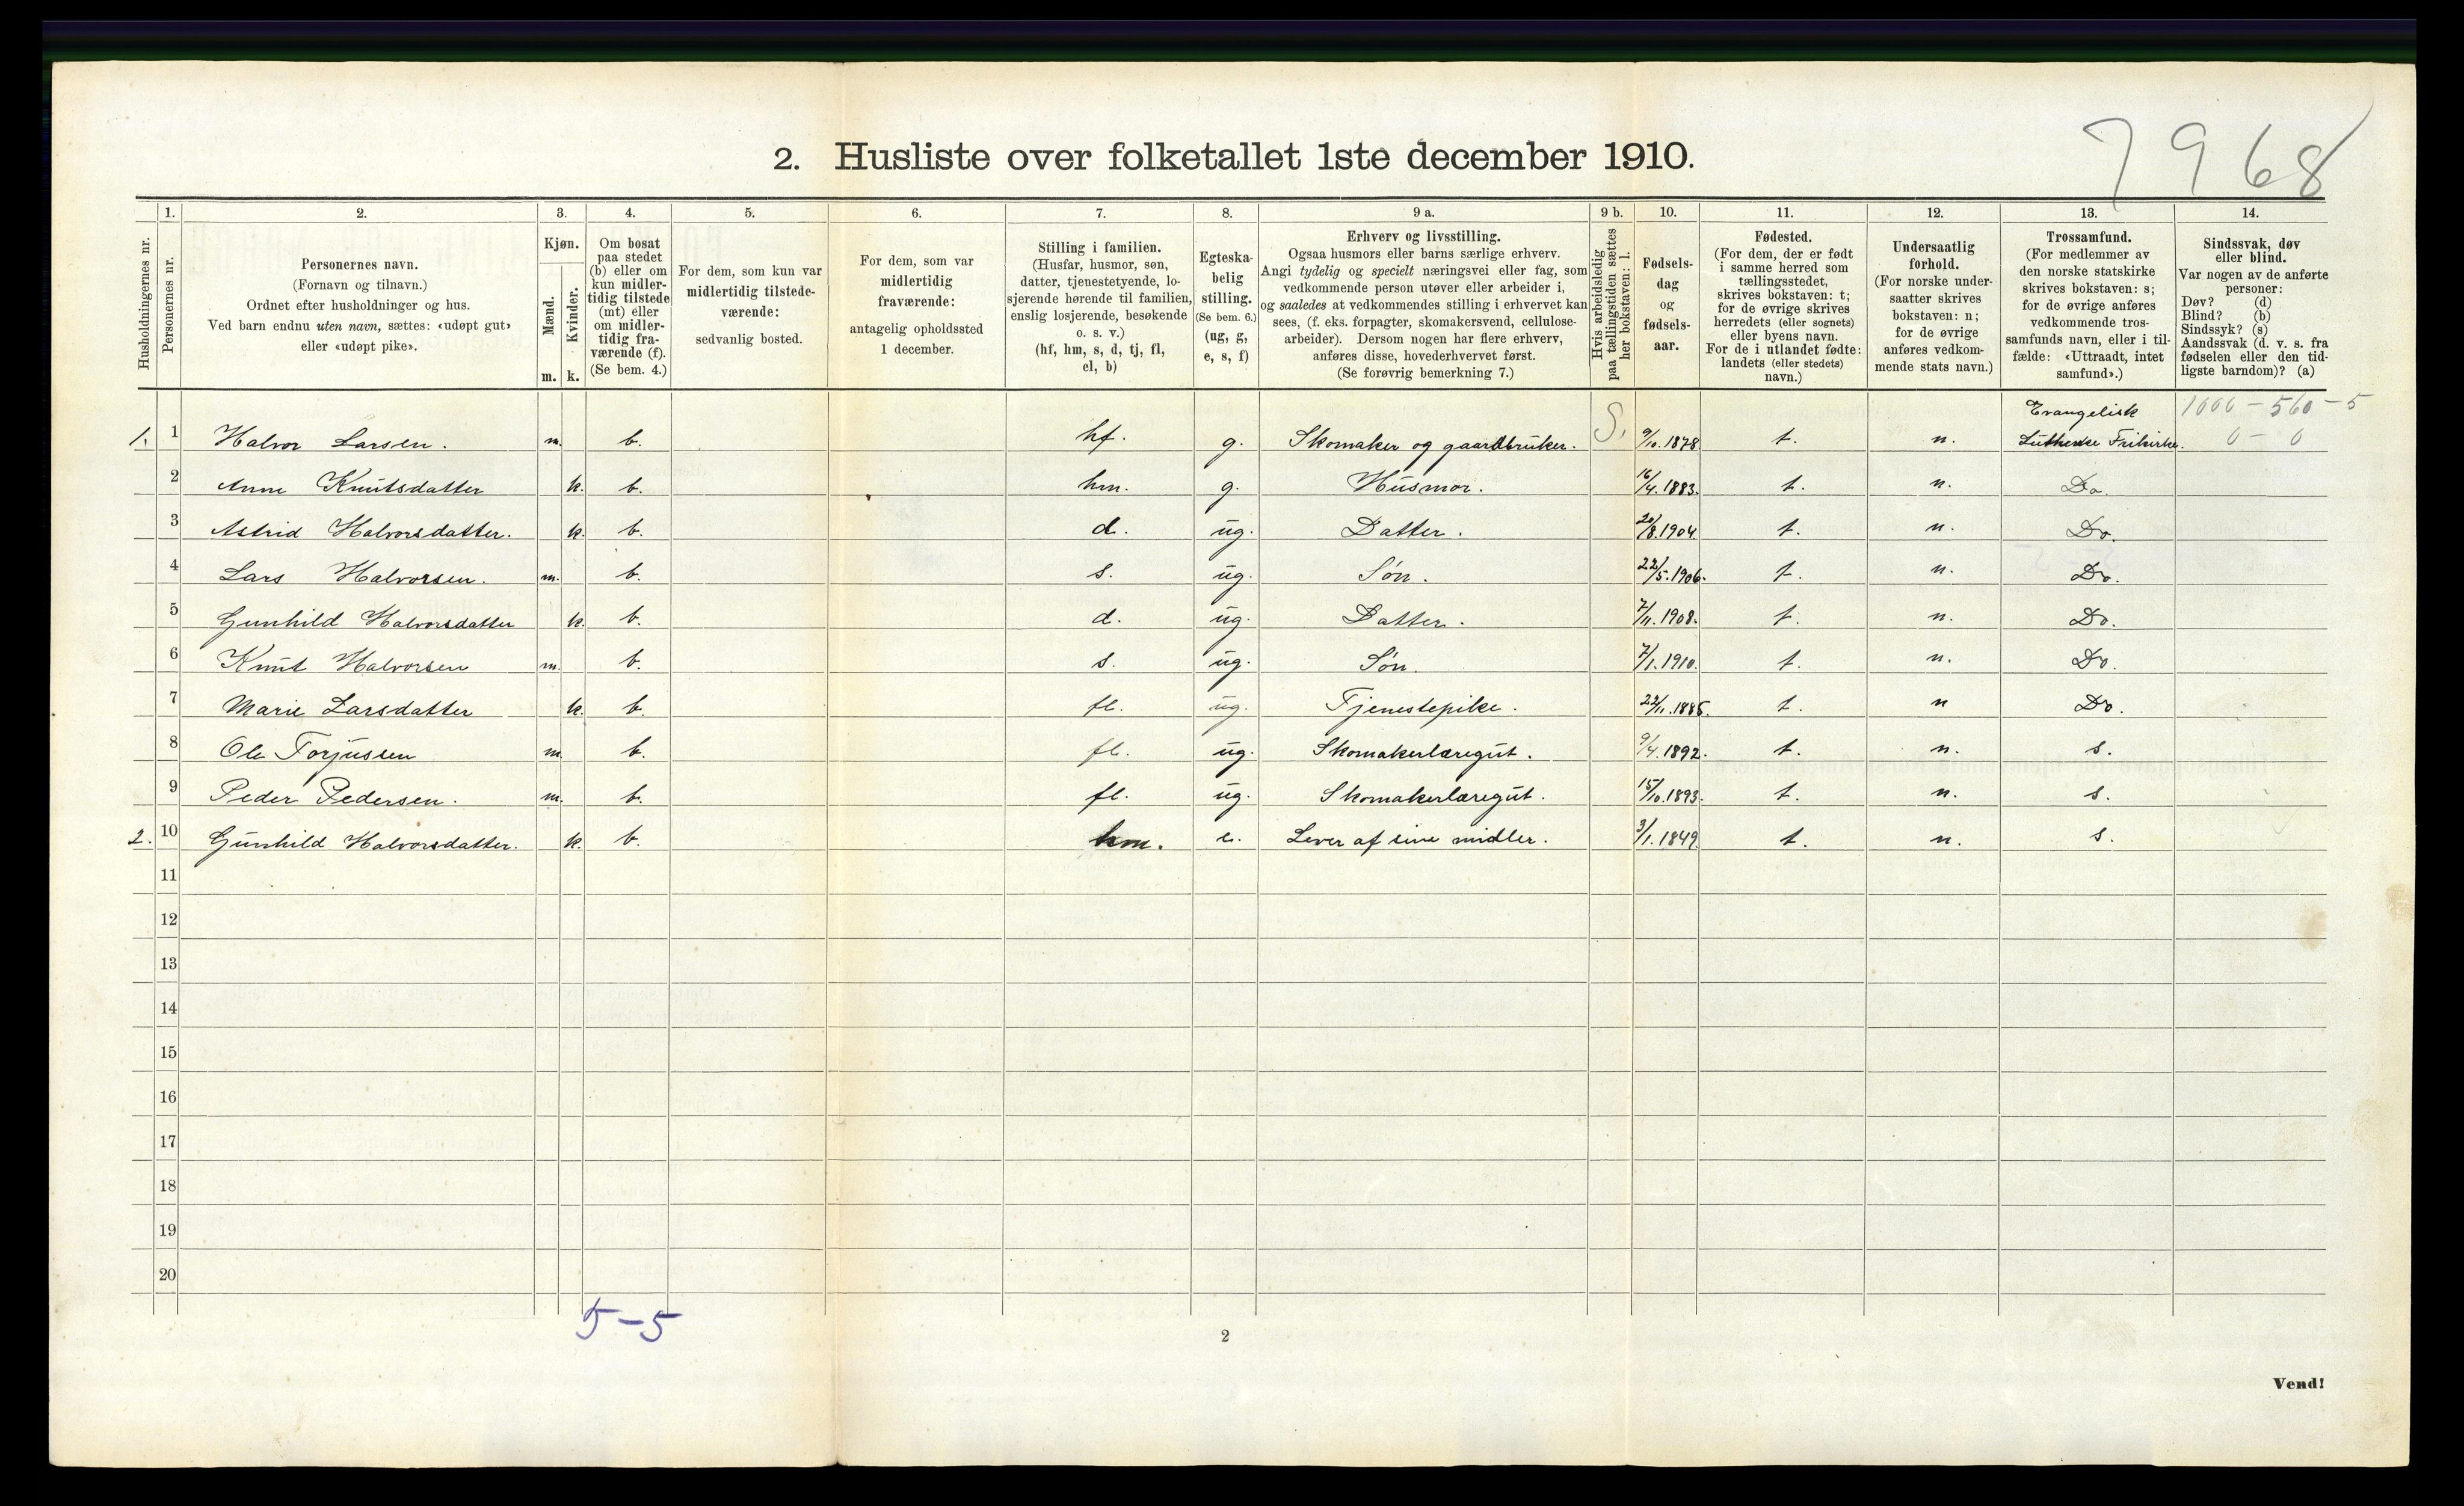 7968
2. Husliste over folketallet 1ste december 1910.
Husholdningernes nr.
1.
Personernes nr.
2.
Personernes navn.
(Fornavn og tilnavn.)
Ordnet efter husholdninger og hus.
Ved barn endnu uten navn, sættes: «udøpt gut»
eller «udøpt pike».
3.
Kjøn.
Mænd.
Kvinder.
m. k.
4.
Om bosat
paa stedet
(b) eller om
kun midler-
tidig tilstede
(mt) eller
om midler-
tidig fra-
værende (f).
(Se bem. 4.)
5.
For dem, som kun var
midlertidig tilstede-
værende:
sedvanlig bosted.
6.
For dem, som var
midlertidig
fraværende:
antagelig opholdssted
1 december.
7.
Stilling i familien.
(Husfar, husmor, søn,
datter, tjenestetyende, lo-
sjerende hørende til familien,
enslig losjerende, besøkende
o. s. v.)
(hf, hm, s, d, tj, fl,
el, b)
8.
Egteska-
belig
stilling.
(Se bem. 6.)
(ug, g,
e, s, f)
9 a.
Erhverv og livsstilling.
Ogsaa husmors eller barns særlige erhverv.
Angi tydelig og specielt næringsvei eller fag, som
vedkommende person utøver eller arbeider i,
og saaledes at vedkommendes stilling i erhvervet kan
sees, (f. eks. forpagter, skomakersvend, cellulose-
arbeider). Dersom nogen har flere erhverv,
anføres disse, hovederhvervet først.
(Se forøvrig bemerkning 7.)
9 b.
Hvis arbeidsledig
paa tællingstiden sættes
her bokstaven: l.
10.
Fødsels-
dag
og
fødsels-
aar.
11.
Fødested.
(For dem, der er født
i samme herred som
tællingsstedet,
skrives bokstaven: t;
for de øvrige skrives
herredets (eller sognets)
eller byens navn.
For de i utlandet fødte:
landets (eller stedets)
navn.)
12.
Undersaatlig
forhold.
(For norske under-
saatter skrives
bokstaven: n;
for de øvrige
anføres vedkom-
mende stats navn.)
13.
Trossamfund.
(For medlemmer av
den norske statskirke
skrives bokstaven: s;
for de øvrige anføres
vedkommende tros-
samfunds navn, eller i til-
fælde: «Uttraadt, intet
samfund».)
14.
Sindssvak, døv
eller blind.
Var nogen av de anførte
personer:
Døv? (d)
Blind? (b)
Sindssyk? (s)
Aandssvak (d. v. s. fra
fødselen eller den tid-
ligste barndom)? (a)
Evangelisk 1000 - 560 - 5
1. 1 Halvor Larsen. m. b. hf. g. Skomaker og gaardbruker. S. 9/10.1878 t. n. Lutherske Frikirke. 0 - 0
2 Anne Knutsdatter k. b. hm. g. Husmor. 16/4.1883. t. n. Do.
3 Astrid Halvorsdatter. k. b. d. ug. Datter. 20/8.1904 t. n. Do.
4 Lars Halvorsen. m. b. s. ug. Søn. 22/5.1906. t. n. Do.
5 Gunhild Halvorsdatter k. b. d. ug. Datter. 7/11.1908. t. n. Do.
6 Knut Halvorsen m. b. s. ug. Søn. 7/1.1910. t. n. Do.
7 Marie Larsdatter k. b. fl. ug. Tjenestepike. t. n Do.
8 Ole Torjussen m. b. fl. ug. Skomakerlæregut. 9/4.1892. t. n. s.
9 Peder Pedersen. m. b. fl. ug. Skomakerlæregut. 15/10.1893. t. n. s.
2. 10 Gunhild Halvorsdatter. k. b. hm. e. Lever af sine midler. 3/1.1849 t. n. s.
11
12
13
14
15
16
17
18
19
20
5-5
2
Vend!